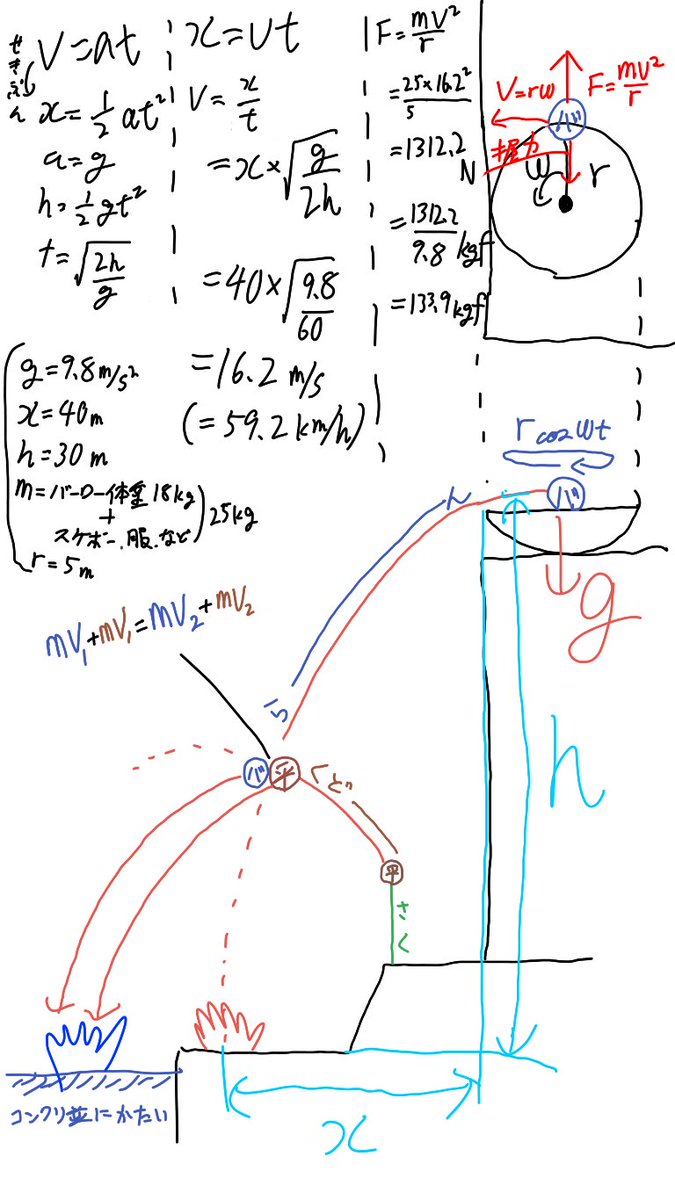 せきぶん
V=at
x=1/2 at²
a=g
h=1/2 gt²
t=√(2h/g)
x=vt
V=x/t
=x×√(g/2h)
=40×√(9.8/60)
=16.2 m/s
(=59.2km/h)
F=mV²/r
=25×16.2²/5
=1312.2 N
=1312.2/9.8 kgf
=133.9kgf
V=rω
F=mV²/r
バ
握力
ω
r
g=9.8m/s²
x=40m
h=30m
m=バーロー体重18kg
+
スケボー、服、など
25kg
r=5m
r cosωt
バ
g
h
mV₁+mV₁=mV₂+mV₂
バ
平
平
さく
コンクリ並にかたい
x